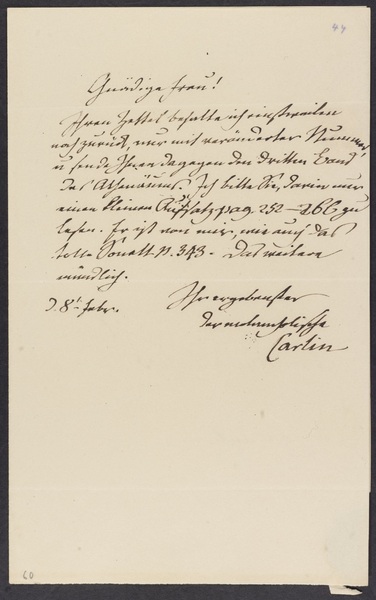 44
Gnädige Frau!
Ihren Zettel behalte ich einstweilen
noch zurück, nur mit veränderter Nummer,
u sende Ihnen dagegen den dritten Band
des Athenäums. Ich bitte Sie, darin nur
einen kleinen Aufsatz pag. 252–266 zu
lesen. Er ist von mir, wie auch das
tolle Sonett p. 343. Das weitere
mündlich.
Ihr ergebenster
D. 8t Febr.
der melancholische
Carlin
60